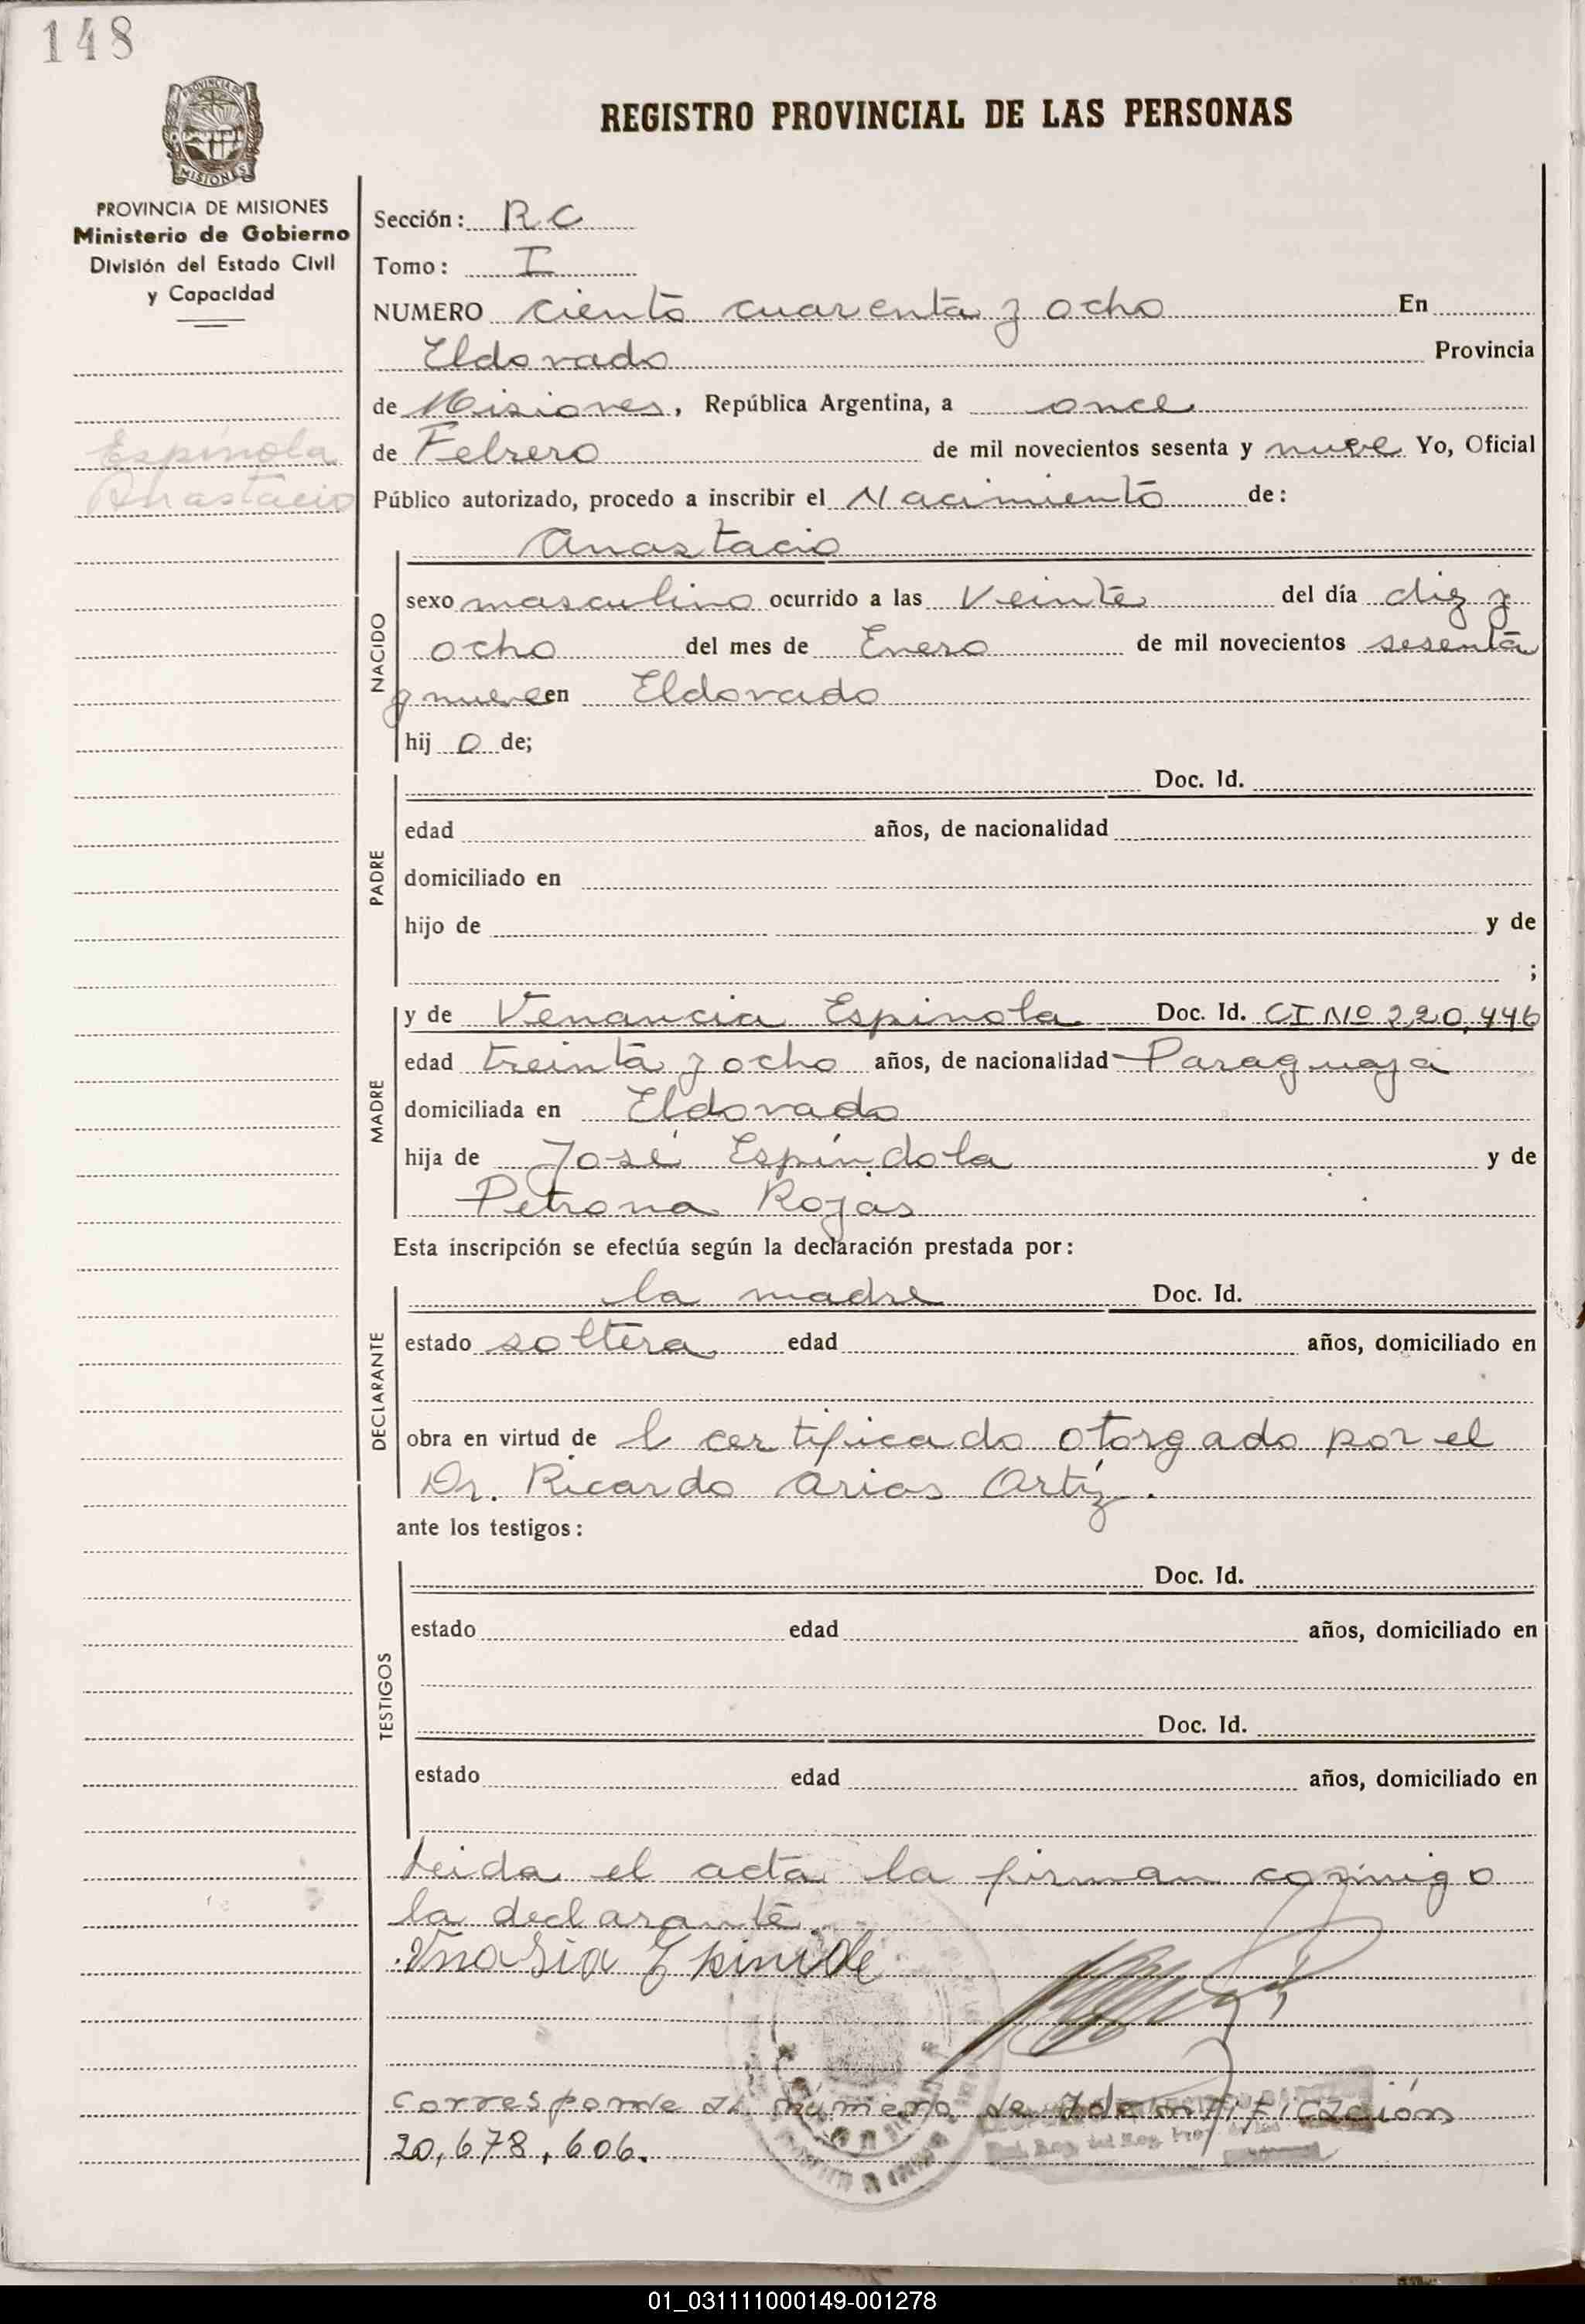 148
PROVINCIA DE MISIONES
Ministerio de Gobierno
División del Estado Civil
y Capacidad
Espínola
Anastacio
REGISTRO PROVINCIAL DE LAS PERSONAS
Sección: R C
Tomo: I
NUMERO ciento cuarenta y ocho En
Eldorado Provincia
de Misiones, República Argentina, a once
de Febrero de mil novecientos sesenta y nueve Yo, Oficial
Público autorizado, procedo a inscribir el Nacimiento de:
Anastacio
NACIDO
sexo masculino ocurrido a las veinte del día diez y
ocho del mes de Enero de mil novecientos sesenta
y nueve en Eldorado
hij o de;
Doc. Id.
PADRE
edad años, de nacionalidad
domiciliado en
hijo de y de
;
MADRE
y de Venancia Espinola Doc. Id. CI Nº 220,446
edad treinta y ocho años, de nacionalidad Paraguaya
domiciliada en Eldorado
hija de José Espíndola y de
Petrona Rojas
Esta inscripción se efectúa según la declaración prestada por:
la madre Doc. Id.
DECLARANTE
estado soltera edad años, domiciliado en
obra en virtud de l certificado otorgado por el
Dr. Ricardo Arias Ortíz.
ante los testigos:
Doc. Id.
TESTIGOS
estado edad años, domiciliado en
Doc. Id.
estado edad años, domiciliado en
Leida el acta la firman conmigo
la declarante
Corresponde al número de Identificación
20,678,606.
01_031111000149-001278